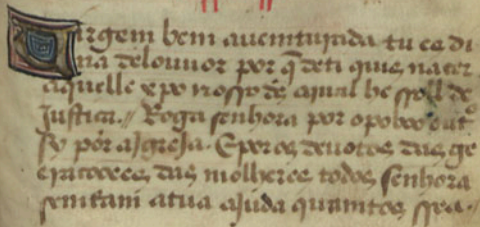 Uirgem bem auenturada tu es di
na de louuor por q̃ de ti quis nacer
aquelle xp̄o nosso dẽs a qual he ssoll de
Justiça.// Roga senhora por o poboo
sy por a Jgreja. E por os deuotos das ge
eracoões das molheres todos senhora
sentam a tua ajuda quantos ssea.//